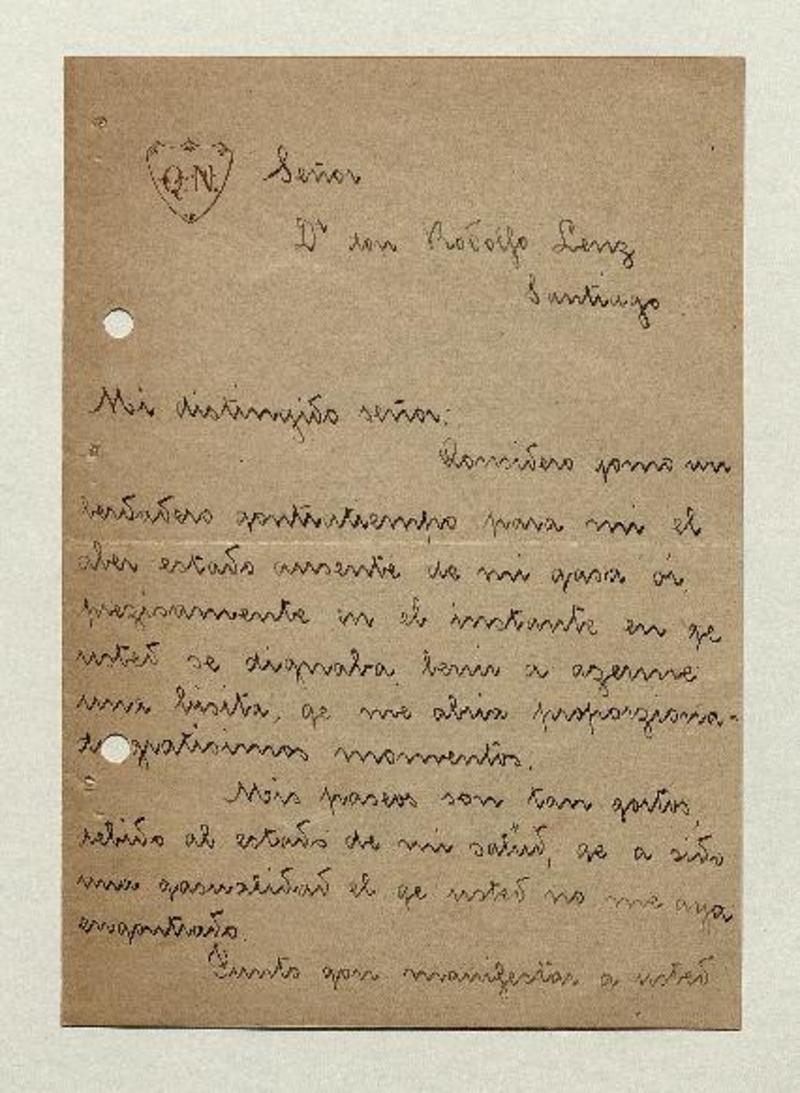 Q.N.
Señor
Dr don Rodolfo Lenz
Santiago
Mi distingido señor:
Qonsidero qomo un
berdadero qontratiempo para mi el
aber estado ausente de mi qasa oi,
prezisamente en el instante en qe
usted se dignaba benir a azerme
una bisita, qe me abria proporziona-
do gratisimos momentos.
Mis paseos son tan qortos,
debido al estado de mi salud, qe a sido
una qasualidad el qe usted no me aya
enqontrado.
Junto qon manifestar a usted